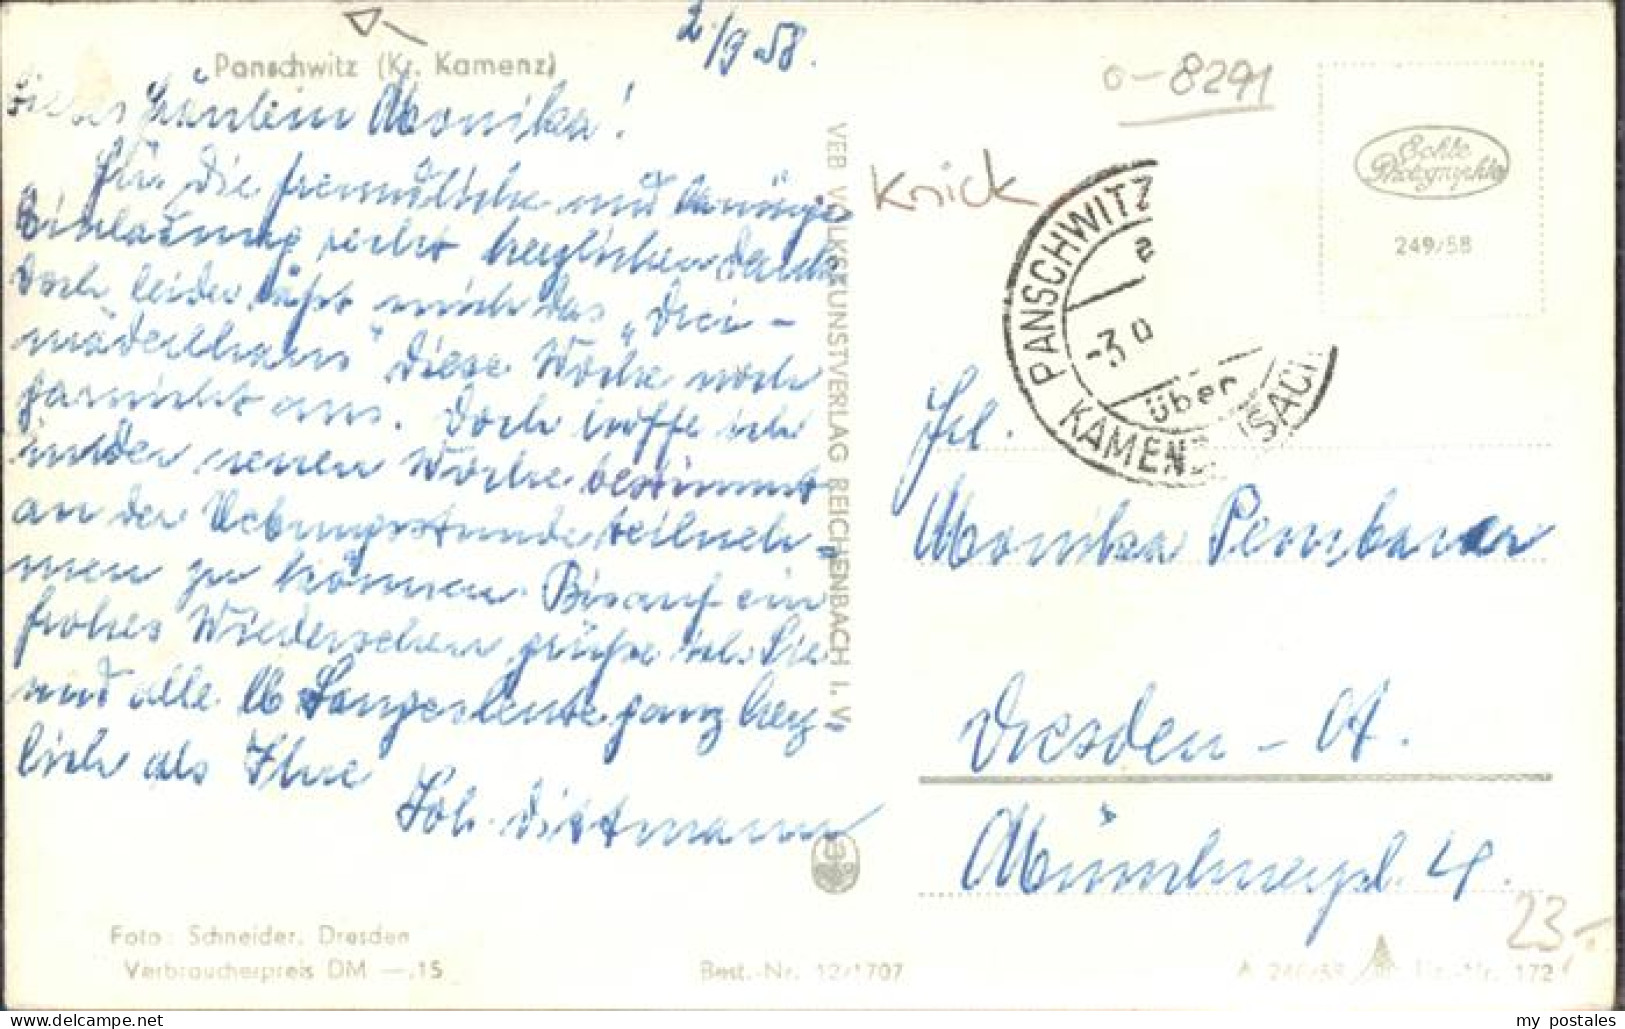 Panschwitz (Kr. Kamenz)
2/9 58.
Liebes Fräulein Monika!
Für die freundliche und
Einladung recht herzlichen Dank
Doch leider läßt mich das „Drei-
mäderlhaus" diese Woche noch
garnicht aus. Doch hoffe ich
in der neuen Woche bestimmt
an der Uebungsstunde teilneh-
men zu können. Bis auf ein
frohes Wiedersehen grüße ich Sie
und alle lb Sangesleute ganz herz-
lich als Ihre
Joh. Dittmann
Foto: Schneider, Dresden
Verbraucherpreis DM —.15
Best.-Nr. 12/1707
VEB VOLKSKUNSTVERLAG REICHENBACH I. V.
o-8291
Knick
PANSCHWITZ
über
KAMENZ
Echte
Photographie
249/58
Frl.
Monika
Dresden - A.
4.
23.-
A 249/58
172
my postales